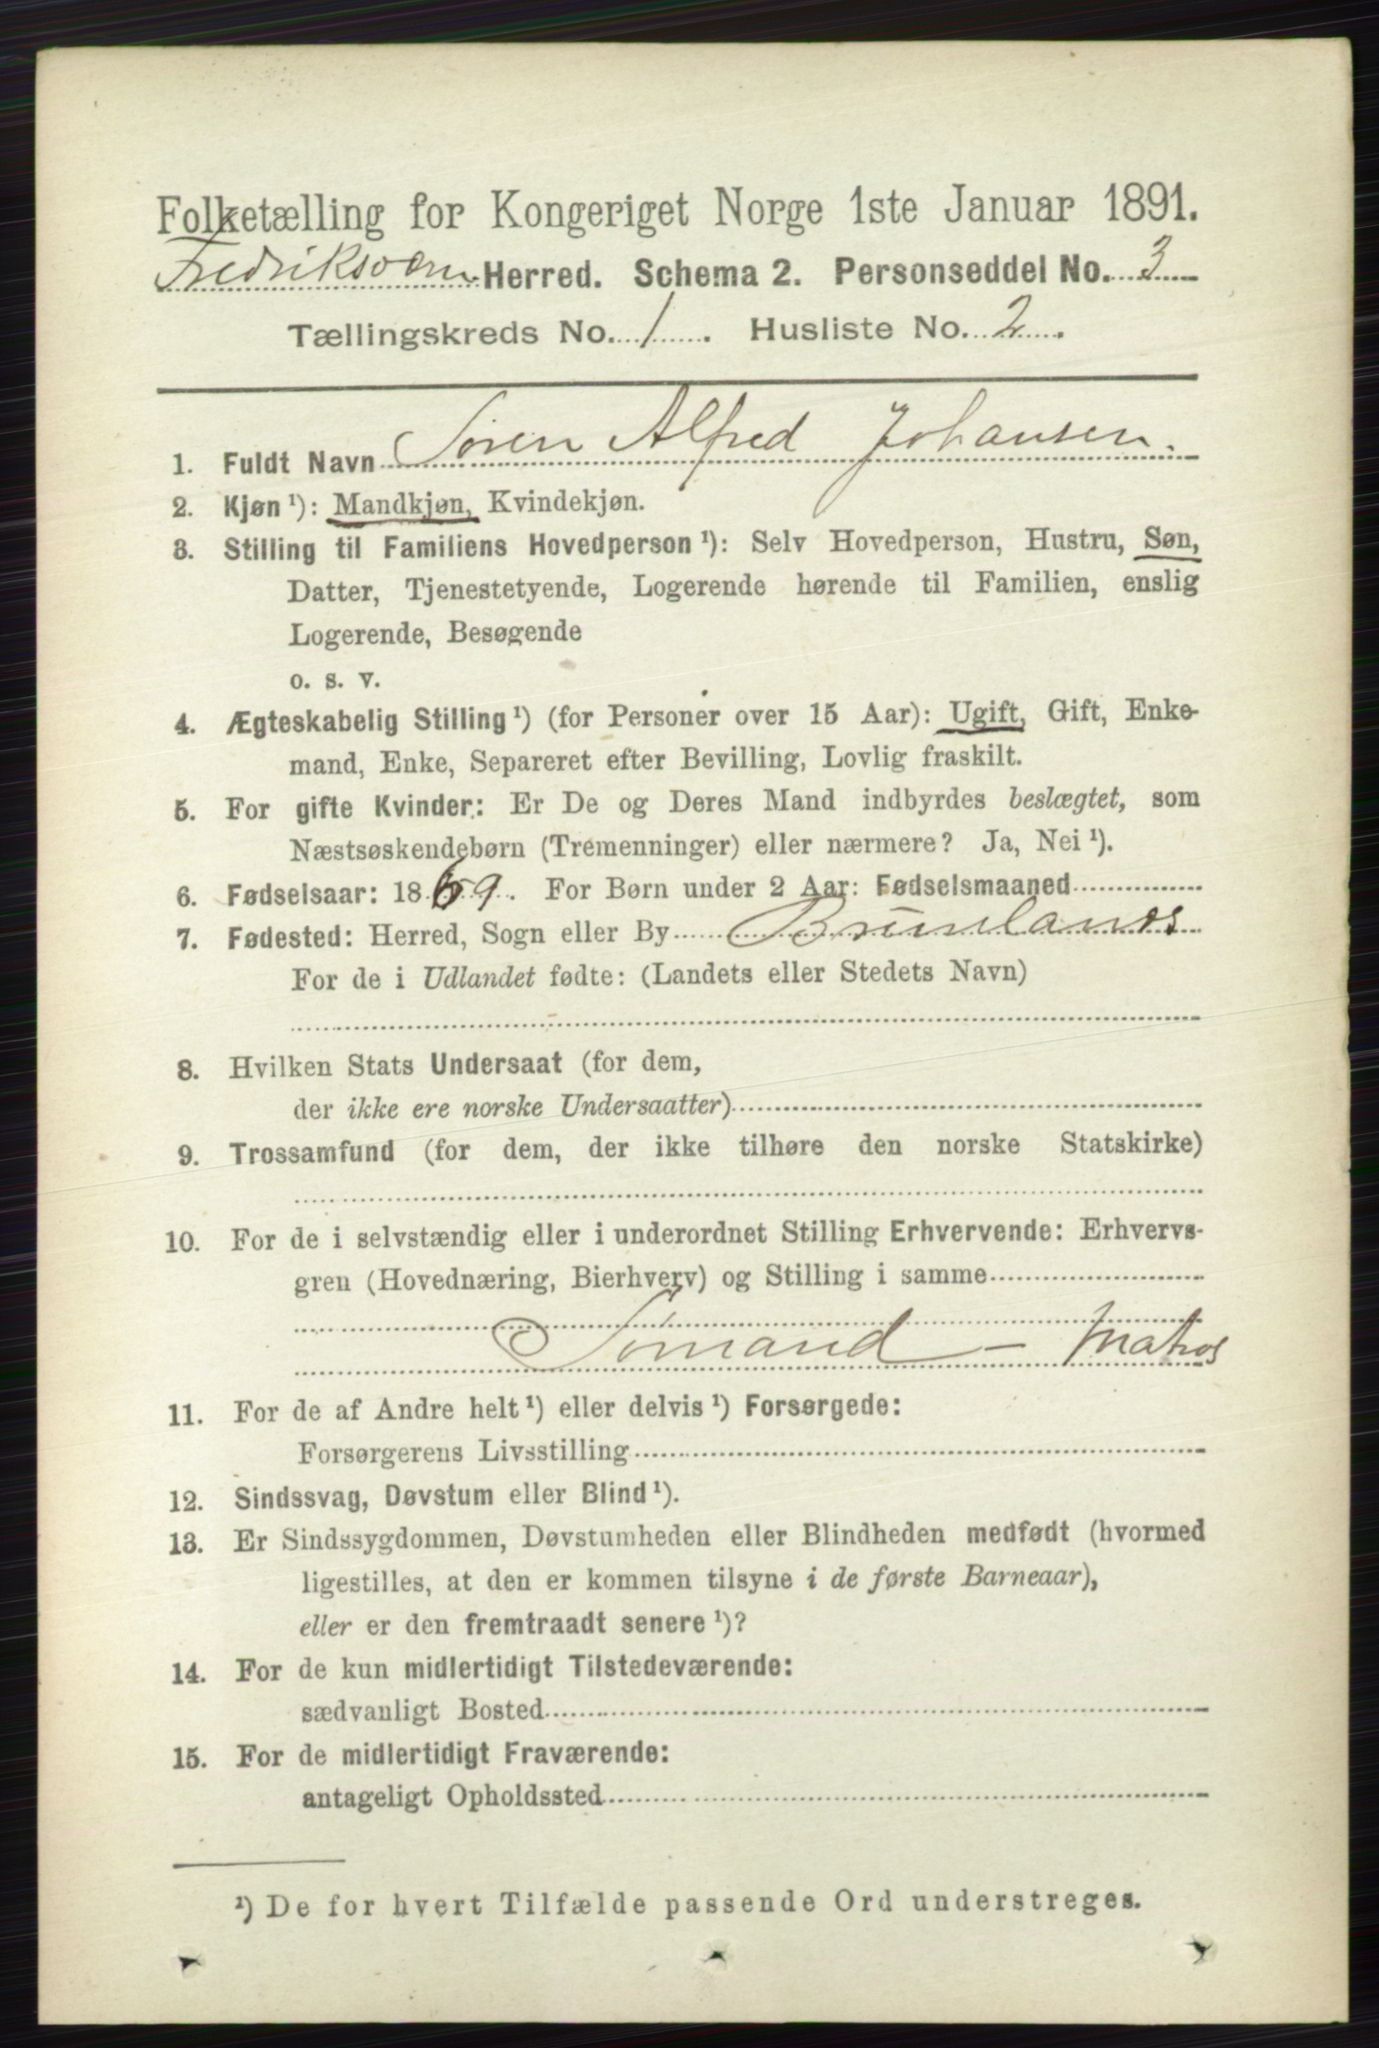 Folketælling for Kongeriget Norge 1ste Januar 1891.
Fredriksværn Herred. Schema 2. Personseddel No. 3
Tællingskreds No. 1. Husliste No. 2.
1. Fuldt Navn Søren Alfred Johansen.
2. Kjøn ¹): Mandkjøn, Kvindekjøn.
3. Stilling til Familiens Hovedperson ¹): Selv Hovedperson, Hustru, Søn,
Datter, Tjenestetyende, Logerende hørende til Familien, enslig
Logerende, Besøgende
o. s. v.
4. Ægteskabelig Stilling ¹) (for Personer over 15 Aar): Ugift, Gift, Enke-
mand, Enke, Separeret efter Bevilling, Lovlig fraskilt.
5. For gifte Kvinder: Er De og Deres Mand indbyrdes beslægtet, som
Næstsøskendebørn (Tremenninger) eller nærmere? Ja, Nei ¹).
6. Fødselsaar: 1869. For Børn under 2 Aar: Fødselsmaaned
7. Fødested: Herred, Sogn eller By Brunlanes
For de i Udlandet fødte: (Landets eller Stedets Navn)
8. Hvilken Stats Undersaat (for dem,
der ikke ere norske Undersaatter)
9. Trossamfund (for dem, der ikke tilhøre den norske Statskirke)
10. For de i selvstændig eller i underordnet Stilling Erhvervende: Erhvervs-
gren (Hovednæring, Bierhverv) og Stilling i samme
Sömand — Matros
11. For de af Andre helt ¹) eller delvis ¹) Forsørgede:
Forsørgerens Livsstilling
12. Sindssvag, Døvstum eller Blind ¹).
13. Er Sindssygdommen, Døvstumheden eller Blindheden medfødt (hvormed
ligestilles, at den er kommen tilsyne i de første Barneaar),
eller er den fremtraadt senere ¹)?
14. For de kun midlertidigt Tilstedeværende:
sædvanligt Bosted
15. For de midlertidigt Fraværende:
antageligt Opholdssted
¹) De for hvert Tilfælde passende Ord understreges.